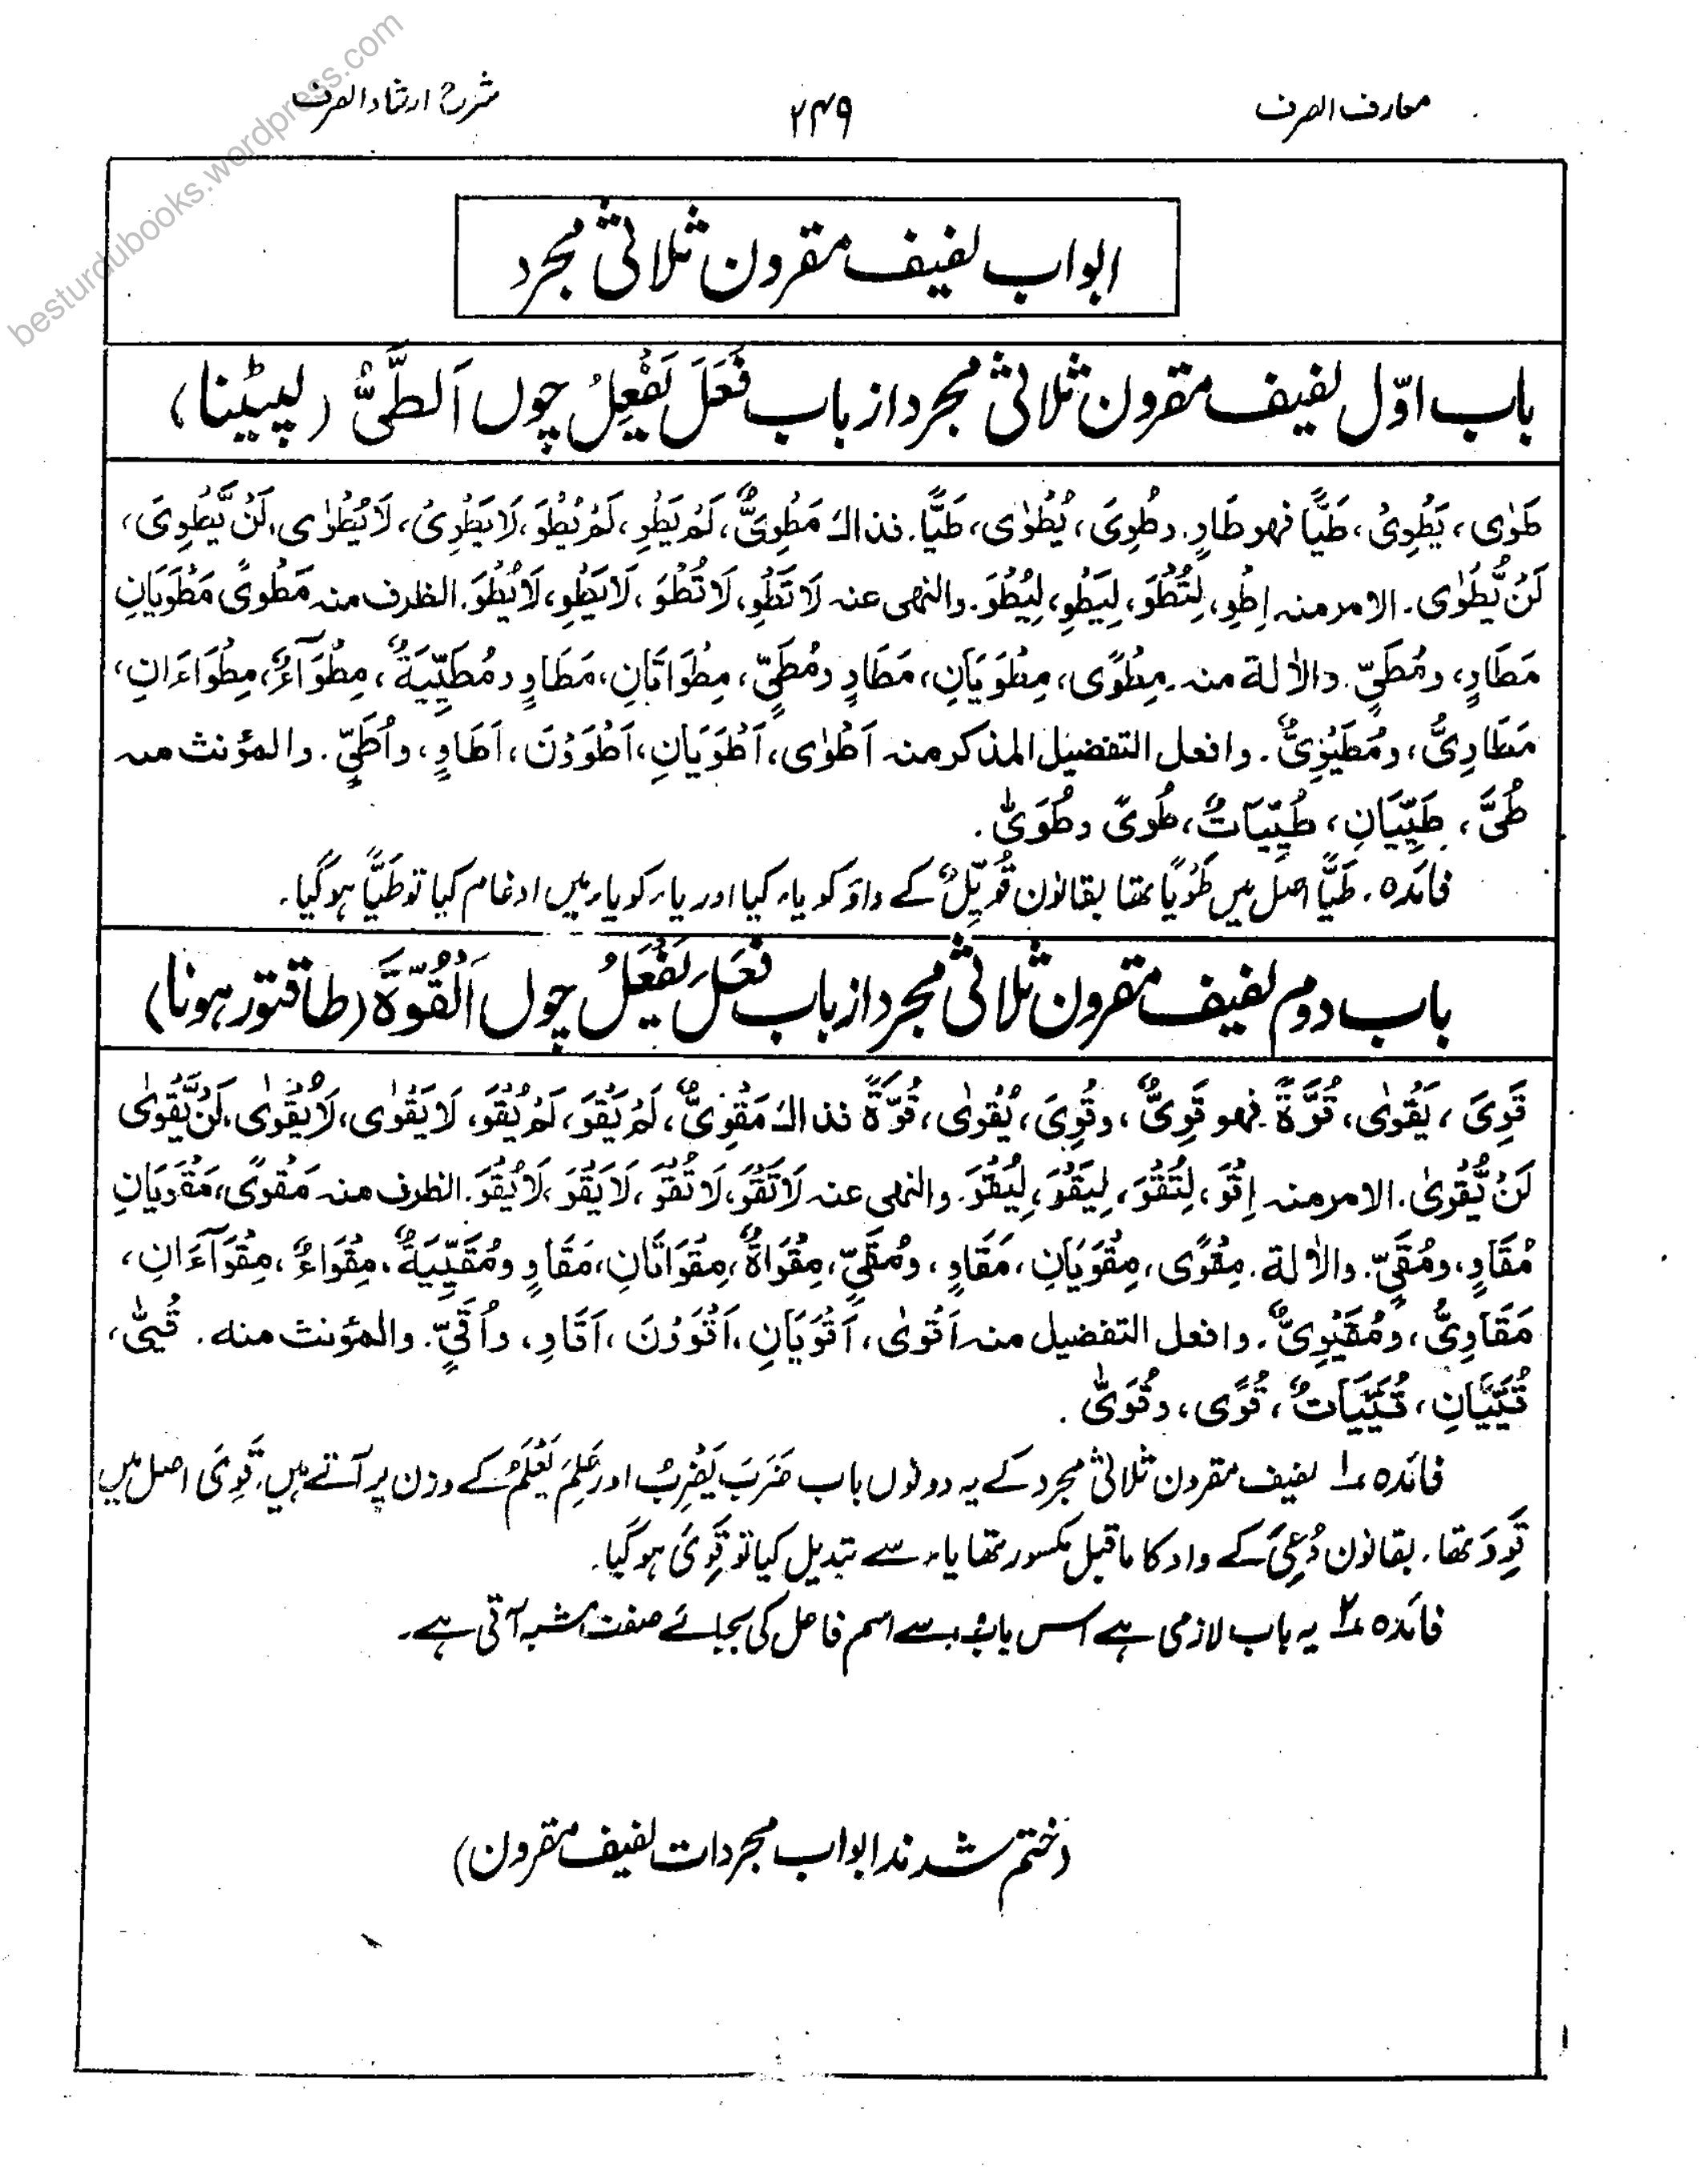 besturdubooks.wordpress.com
معارف الصرف
۲۴۹
شرح ارشاد الصرف
ابواب لفیف مقرون ثلاثی مجرد
باب اوّل لفیف مقرون ثلاثی مجرد از باب فَعَلَ یَفْعِلُ چوں اَلطَّیُّ (لپیٹنا)
طَوٰی، یَطْوِیْ، طَیًّا فهو طَاوٍ. وطُوِیَ، یُطْوٰی، طَیًّا. فذاك مَطْوِیٌّ، لَمْ یَطْوِ، لَمْ یُطْوَ، لَا یَطْوِیْ، لَا یُطْوٰی، لَنْ یَّطْوِیَ،
لَنْ یُّطْوٰی. الامر منه اِطْوِ، لِتُطْوَ، لِیَطْوِ، لِیُطْوَ. والنهی عنه لَا تَطْوِ، لَا تُطْوَ، لَا یَطْوِ، لَا یُطْوَ. الظرف منه مَطْوًی مَطْوَیَانِ
مَطَاوٍ، ومُطَیٍّ. والاٰلة منه مِطْوًی، مِطْوَیَانِ، مَطَاوٍ ومُطَیٍّ، مِطْوَاتَانِ، مَطَاوٍ ومُطَیِّیَةٌ، مِطْوَآءٌ، مِطْوَاءَانِ،
مَطَاوِیُّ، ومُطَیْوِیٌّ. وافعل التفضیل المذکر منه اَطْوٰی، اَطْوَیَانِ، اَطْوَوْنَ، اَطَاوٍ، واُطَیٍّ. والمؤنث منه
طُیّٰ، طُیَّیَانِ، طُیَّیَاتٌ، طُوًی وطُوَیّٰ.
فائدہ۔ طَیًّا اصل میں طَوْیًا تھا بقانون قُوَیِّلٌ کے واؤ کو یاء کیا اور یاء کو یاء میں ادغام کیا تو طَیًّا ہوگیا۔
باب دوم لفیف مقرون ثلاثی مجرد از باب فَعِلَ یَفْعَلُ چوں اَلْقُوَّةُ (طاقتور ہونا)
قَوِیَ، یَقْوٰی، قُوَّةً فهو قَوِیٌّ، وقُوِیَ، یُقْوٰی، قُوَّةً فذاك مَقْوِیٌّ، لَمْ یَقْوَ، لَمْ یُقْوَ، لَا یَقْوٰی، لَا یُقْوٰی، لَنْ یَّقْوٰی
لَنْ یُّقْوٰی. الامر منه اِقْوَ، لِتُقْوَ، لِیَقْوَ، لِیُقْوَ. والنهی عنه لَا تَقْوَ، لَا تُقْوَ، لَا یَقْوَ، لَا یُقْوَ. الظرف منه مَقْوًی، مَقْوَیَانِ
مُقَاوٍ، ومُقَیٍّ. والاٰلة. مِقْوًی، مِقْوَیَانِ، مَقَاوٍ، ومُقَیٍّ، مِقْوَاةٌ، مِقْوَاتَانِ، مَقَاوٍ ومُقَیِّیَةٌ، مِقْوَاءٌ، مِقْوَآءَانِ،
مَقَاوِیُّ، ومُقَیْوِیٌّ. وافعل التفضیل منه اَقْوٰی، اَقْوَیَانِ، اَقْوَوْنَ، اَقَاوٍ، واُقَیٍّ. والمؤنث منه. قُیّٰی،
قُیَّیَانِ، قُیَّیَاتٌ، قُوًی، وقُوَیّٰ.
فائدہ ۱ لفیف مقرون ثلاثی مجرد کے یہ دونوں باب ضَرَبَ یَضْرِبُ اور عَلِمَ یَعْلَمُ کے وزن پر آتے ہیں، قَوِیَ اصل میں
قَوِوَ تھا۔ بقانون دُعِیَ کے واو کا ماقبل مکسور تھا یاء سے تبدیل کیا تو قَوِیَ ہوگیا۔
فائدہ ۲ یہ باب لازمی ہے اس باب سے اسم فاعل کی بجائے صفت مشبہ آتی ہے۔
(ختم شدند ابواب مجردات لفیف مقرون)